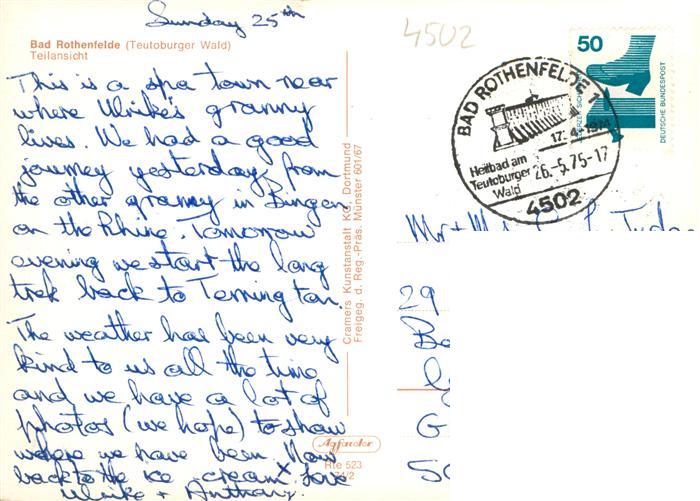 Sunday 25th
4502
Bad Rothenfelde (Teutoburger Wald)
Teilansicht
This is a spa town near
where Ulrike's granny
lives. We had a good
journey yesterday, from
the other granny in Bingen
on the Rhine. Tomorrow
evening we start the long
trek back to Terrington.
The weather has been very
kind to us all the time
and we have a lot of
photos (we hope) to show
where we have been. Now
back to the ice cream x Love
Ulrike + Anthony.
Cramers Kunstanstalt KG, Dortmund
Freigeg. d. Reg.-Präs. Münster 601/67
Agfacolor
Rte 523
74/2
50
DEUTSCHE BUNDESPOST
BAD ROTHENFELDE 1
17.4.1974
Heilbad am
Teutoburger
Wald
26.-5.75-17
4502
Mr + Mrs
29
Be
G